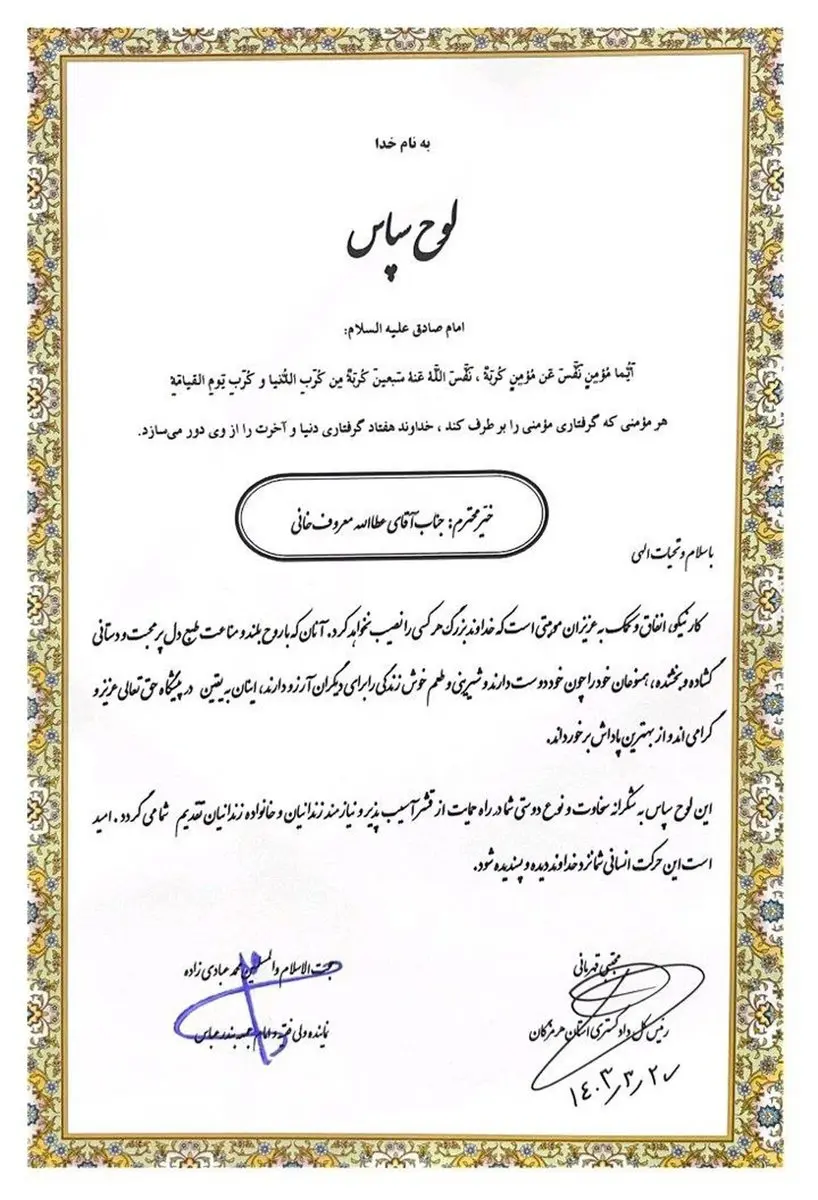 به نام خدا
لوح سپاس
امام صادق علیه السلام:
أیُّما مُؤمِنٍ نَفَّسَ عَن مُؤمِنٍ کُربَةً ، نَفَّسَ اللَّهُ عَنهُ سَبعینَ کُربَةً مِن کُرَبِ الدُّنیا و کُرَبِ یَومِ القیامَةِ
هر مؤمنی که گرفتاری مؤمنی را بر طرف کند ، خداوند هفتاد گرفتاری دنیا و آخرت را از وی دور می‌سازد.
خیّر محترم: جناب آقای عطاالله معروف خانی
با سلام و تحیات الهی
کار نیکو، انفاق و کمک به عزیزان موهبتی است که خداوند بزرگ هر کسی را نصیب نخواهد کرد. آنان که با روح بلند و مناعت طبع دل پر محبت و دستانی
گشاده و بخشنده، همنوعان خود را چون خود دوست دارند و شیرینی و طعم خوش زندگی را برای دیگران آرزو دارند، اینان به یقین در پیشگاه حق تعالی عزیز و
گرامی اند و از بهترین پاداش برخوردارند.
این لوح سپاس به شکرانه سخاوت و نوع دوستی شما در راه حمایت از قشر آسیب پذیر و نیازمند زندانیان و خانواده زندانیان تقدیم شما می گردد. امید
است این حرکت انسانی شما نزد خداوند دیده و پسندیده شود.
مجتبی قهرمانی
رئیس کل دادگستری استان هرمزگان
۱۴۰۳/۳/۲۰
حجت الاسلام والمسلمین محمد عبادی زاده
نماینده ولی فقیه و امام جمعه بندرعباس